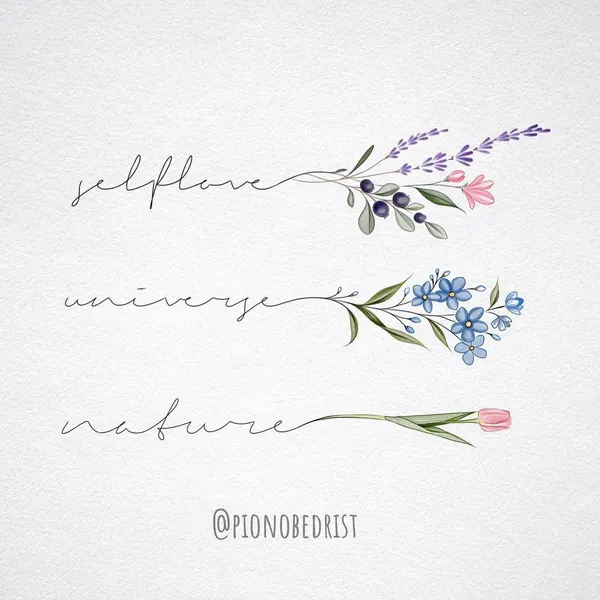 selflove
universe
nature
@PIONOBEDRIST